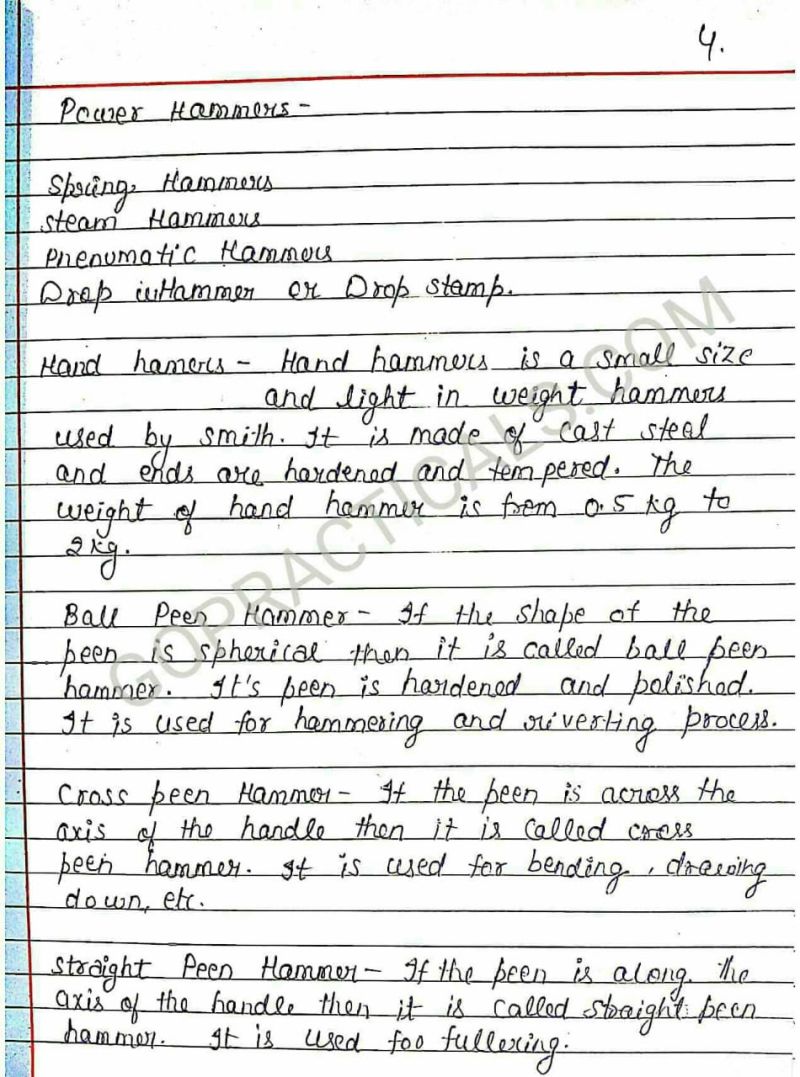 4.
Power Hammers -
Spring Hammers
steam Hammers
Pnenumatic Hammers
Drop Hammer or Drop stamp.
Hand hamers - Hand hammers is a small size
and light in weight hammers
used by smith. It is made of cast steal
and ends are hardened and tempered. The
weight of hand hammer is from 0.5 kg to
2 kg.
Ball Peen Hammer - If the shape of the
peen is spherical then it is called ball peen
hammer. It's peen is hardened and polished.
It is used for hammering and riverting process.
Cross peen Hammer - If the peen is across the
axis of the handle then it is called cross
peen hammer. It is used for bending, drawing
down, etc.
straight Peen Hammer - If the peen is along the
axis of the handle then it is called straight peen
hammer. It is used foo fullering.
GOPRACTICALS.COM